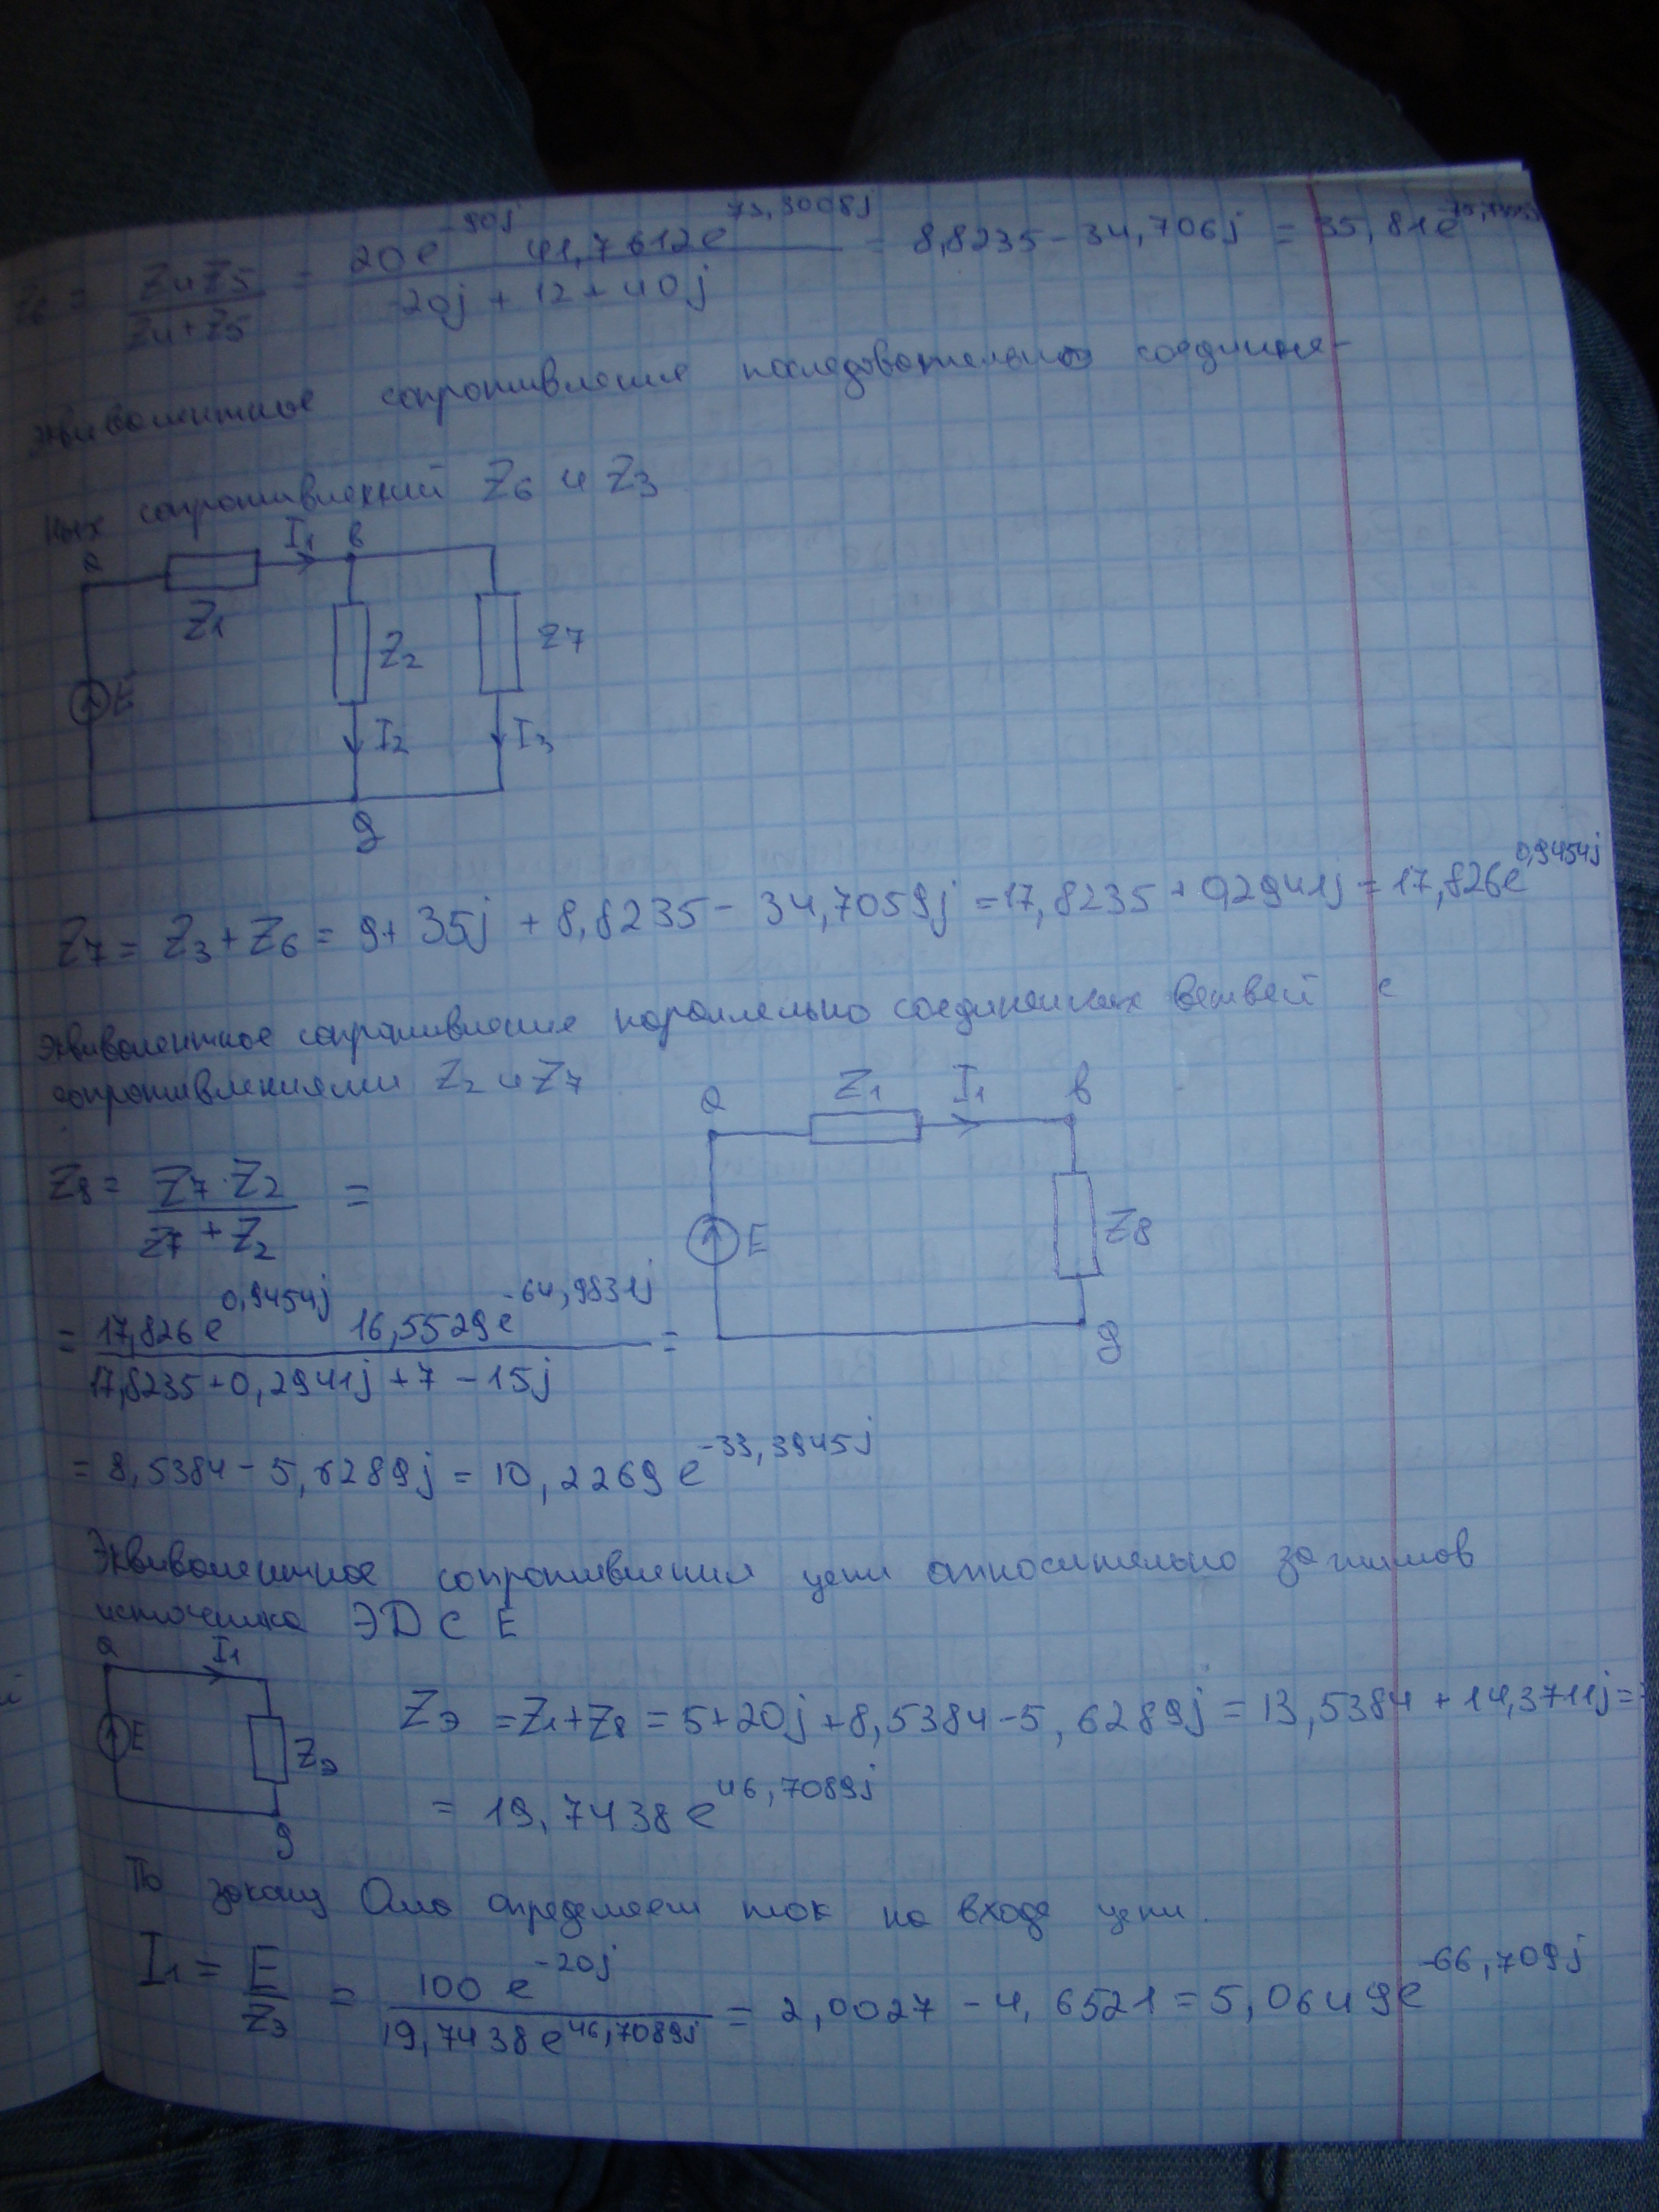 Z6 = Z4Z5 / Z4+Z5 = 20e^-90j 41,7612e^73,3008j / -20j + 12 + 40j = 8,8235 - 34,706j = 35,81e
Эквивалентное сопротивление последовательно соединен-
ных сопротивлений Z6 и Z3
a I1 в
Z1
Z2 Z7
E
I2 I3
д
Z7 = Z3 + Z6 = 9 + 35j + 8,8235 - 34,7059j = 17,8235 + 0,2941j = 17,826e^0,9454j
Эквивалентное сопротивление параллельно соединенных ветвей с
сопротивлениями Z2 и Z7
a Z1 I1 в
Z8 = Z7·Z2 / Z7 + Z2 =
E Z8
д
= 17,826e^0,9454j 16,5529e^-64,9831j / 17,8235 + 0,2941j + 7 - 15j =
= 8,5384 - 5,6289j = 10,2269e^-33,3945j
Эквивалентное сопротивления цепи относительно зажимов
источника ЭДС E
a I1
E Zэ
д
Zэ = Z1 + Z8 = 5 + 20j + 8,5384 - 5,6289j = 13,5384 + 14,3711j =
= 19,7438e^46,7089j
По закону Ома определяем ток на входе цепи.
I1 = E / Zэ = 100e^-20j / 19,7438e^46,7089j = 2,0027 - 4,6521 = 5,0649e^-66,709j